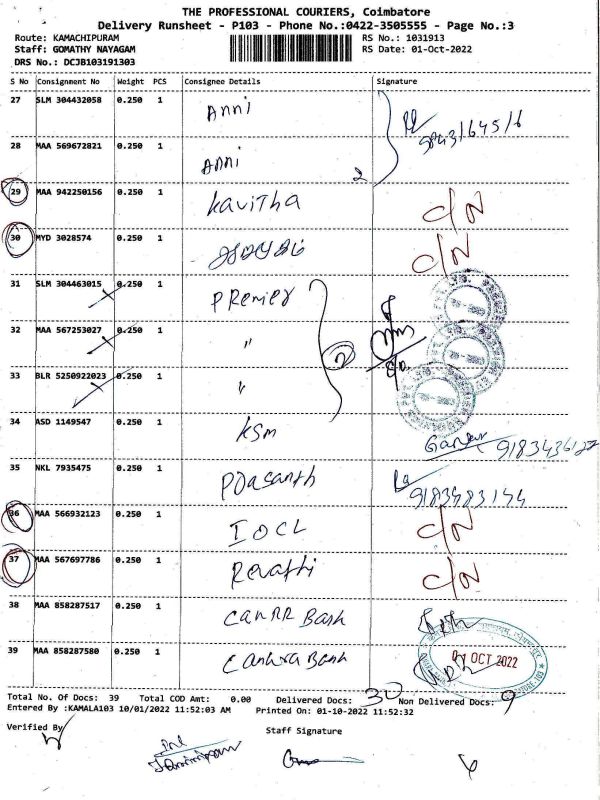 THE PROFESSIONAL COURIERS, Coimbatore
Delivery Runsheet - P103 - Phone No.:0422-3505555 - Page No.:3
Route: KAMACHIPURAM RS No.: 1031913
Staff: GOMATHY NAYAGAM RS Date: 01-Oct-2022
DRS No.: DCJB103191303
S No Consignment No Weight PCS Consignee Details Signature
27 SLM 304432058 0.250 1 Anni
28 MAA 569672821 0.250 1 Anni
29 MAA 942250156 0.250 1 Kavitha C/N
30 MYD 3028574 0.250 1 C/N
31 SLM 304463015 0.250 1 Premier
32 MAA 567253027 0.250 1 "
33 BLR 5250922023 0.250 1 "
34 ASD 1149547 0.250 1 KSM
35 NKL 7935475 0.250 1 9183483144
36 MAA 566932123 0.250 1 IOCL C/N
37 MAA 567697786 0.250 1 Revathi C/N
38 MAA 858287517 0.250 1
39 MAA 858287580 0.250 1 Bank
OCT 2022
Total No. Of Docs: 39 Total COD Amt: 0.00 Delivered Docs: 30 Non Delivered Docs: 9
Entered By :KAMALA103 10/01/2022 11:52:03 AM Printed On: 01-10-2022 11:52:32
Verified By Staff Signature